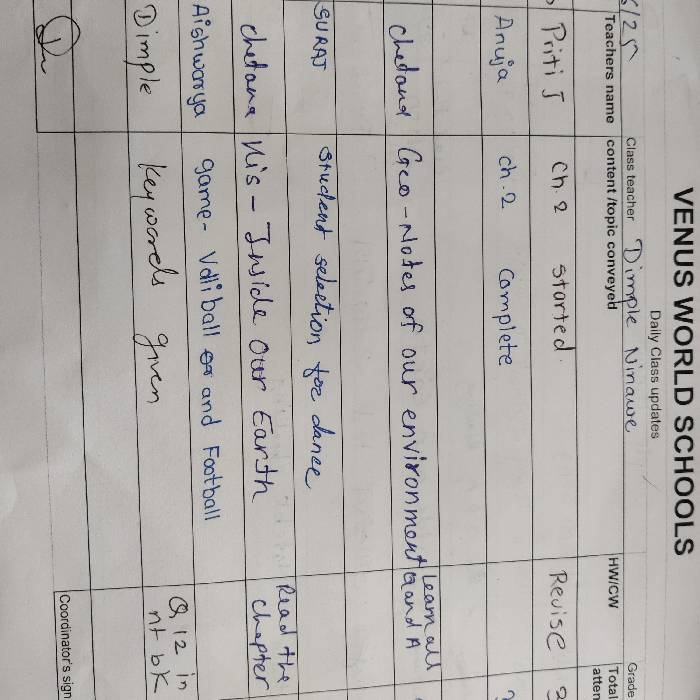 VENUS WORLD SCHOOLS
Daily Class updates
/25 Class teacher Dimple Ninawe Grade
Teachers name content /topic conveyed HW/CW Total atten
Priti J Ch. 2 started. Revise
Anuja ch. 2 Complete
Chetana Geo - Notes of our environment Learn all Q and A
SURAJ Student selection for dance
Chetana His - Inside Our Earth Read the Chapter
Aishwarya game - Volliball and Football
Dimple keywords given Q, 12 in nt bk
Coordinator's sign